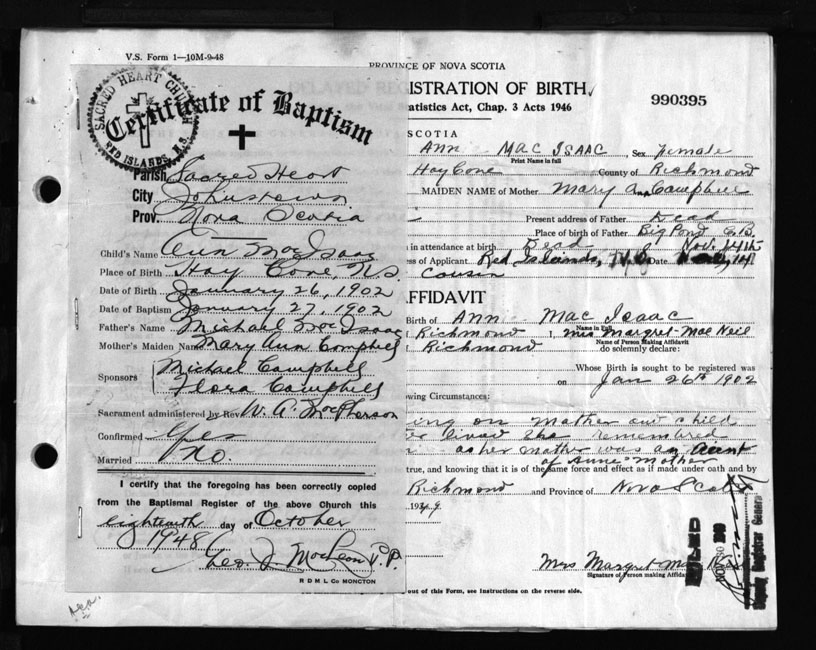 V.S. Form 1—10M-9-48
SACRED HEART CHURCH
RED ISLANDS, N.S.
Certificate of Baptism
Parish Sacred Heart
City Johnstown
Prov. Nova Scotia
Child's Name Ann MacIsaac
Place of Birth Hay Cove, N.S.
Date of Birth January 26, 1902
Date of Baptism January 27, 1902
Father's Name Michael MacIsaac
Mother's Maiden Name Mary Ann Campbell
Sponsors Michael Campbell
Flora Campbell
Sacrament administered by Rev. W. A. MacPherson
Confirmed Yes
Married No.
I certify that the foregoing has been correctly copied
from the Baptismal Register of the above Church this
eighteenth day of October
1948
Geo. J. MacLean P.P.
R D M L Co MONCTON
PROVINCE OF NOVA SCOTIA
ISTRATION OF BIRTH
tatistics Act, Chap. 3 Acts 1946
990395
SCOTIA
Ann MacIsaac, Sex Female
Print Name in full
Hay Cove County of Richmond
MAIDEN NAME of Mother Mary Ann Campbell
Present address of Father Dead
Place of birth of Father Big Pond C.B.
in attendance at birth Dead
ss of Applicant Red Islands, Date
Cousin
AFFIDAVIT
Birth of Ann Mac Isaac
Name in Full
Richmond I, Mrs Margret Mac Neil
Name of Person Making Affidavit
Richmond do solemnly declare:
Whose Birth is sought to be registered was
on Jan 26th 1902
owing Circumstances:
ing on Mother and child
lived She remembered
as her mother was an Aunt
of Anns Mother
true, and knowing that it is of the same force and effect as if made under oath and by
Richmond and Province of Nova Scotia
Mrs Margret Mac Neil
Signature of Person making Affidavit
FILED
Deputy Registrar General
out of this Form, see Instructions on the reverse side.